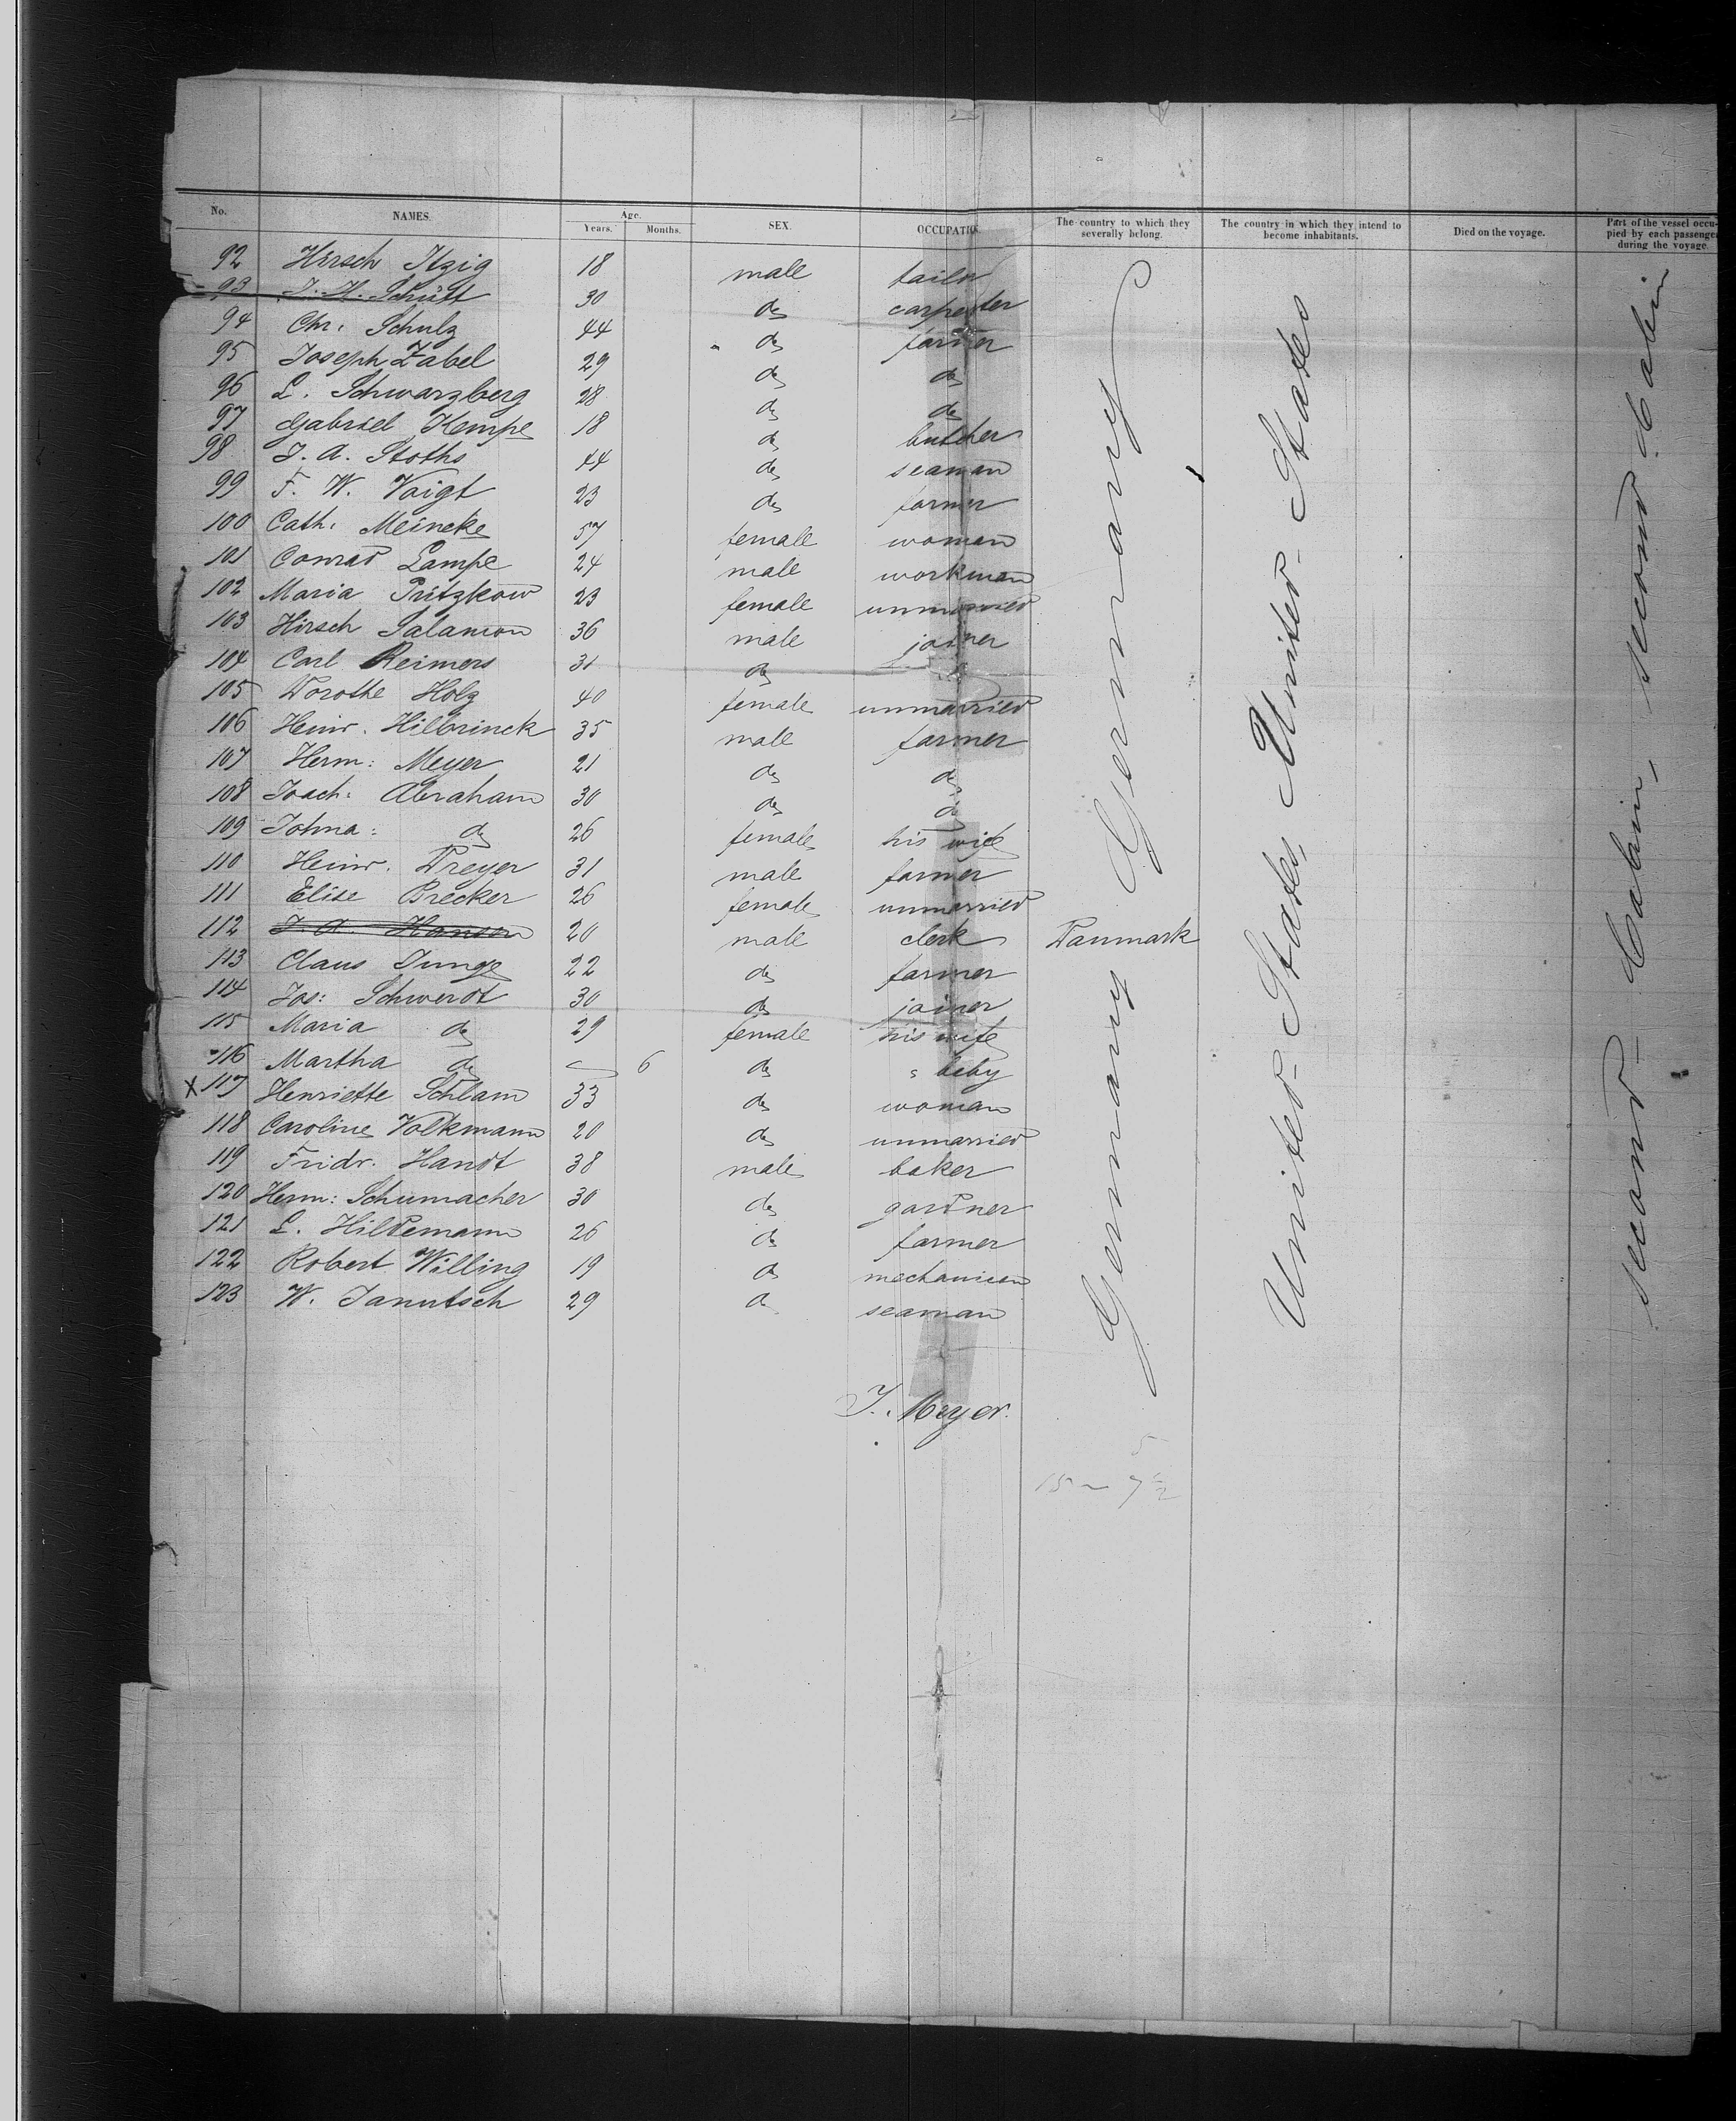 No. NAMES. Age. Years. Months. SEX. OCCUPATIO The country to which they severally belong. The country in which they intend to become inhabitants. Died on the voyage. Part of the vessel occu- pied by each passenger during the voyage.
92 Hirsch Itzig 18 male tailor
93 J. H. Schütt 30 do carpenter
94 Chr. Schulz 44 do farmer
95 Joseph Zabel 29 do do
96 L. Schwarzberg 28 do do
97 Gabriel Kempe 18 do butcher
98 J. A. Stoths 44 do seaman
99 F. W. Voigt 23 do farmer
100 Cath: Meincke 57 female woman
101 Conrad Lampe 24 male workman
102 Maria Pritzkow 23 female unmarried
103 Hirsch Salamon 36 male joiner
104 Carl Reimers 31 do
105 Dorothe Holz 40 female unmarried
106 Heinr. Hilbrinck 35 male farmer
107 Herm: Meyer 21 do do
108 Joach: Abraham 30 do do
109 Johna: do 26 female his wife
110 Heinr. Dreyer 31 male farmer
111 Elise Brecker 26 female unmarried
112 J. A. Hansen 20 male clerk Danmark
113 Claus Junge 22 do farmer
114 Jos: Schwerdt 30 do joiner
115 Maria do 29 female his wife
116 Martha do 6 do beby
X 117 Henriette Schlam 33 do woman
118 Caroline Volkmann 20 do unmarried
119 Fridr. Handt 38 male baker
120 Herm: Schumacher 30 do gardner
121 L. Hildemann 26 do farmer
122 Robert Willing 19 do mechanicen
123 W. Janutsch 29 do seaman
Germany Germany
United-States, United-States
second-Cabin, second-Cabin
J. Meyer.